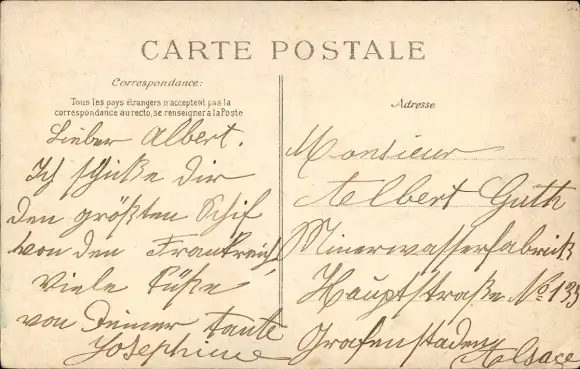 CARTE POSTALE
Correspondance:
Tous les pays étrangers n'acceptent pas la
correspondance au recto, se renseigner à la Poste
Lieber Albert.
Ich schicke Dir
den größten Schif
von den Frankreich
Viele Küße
von Deiner Tante
Josephine
Adresse
Monsieur
Aelbert Guth
Minerwasserfabrick
Hauptstraße No 135
Grafenstaden
Elsace